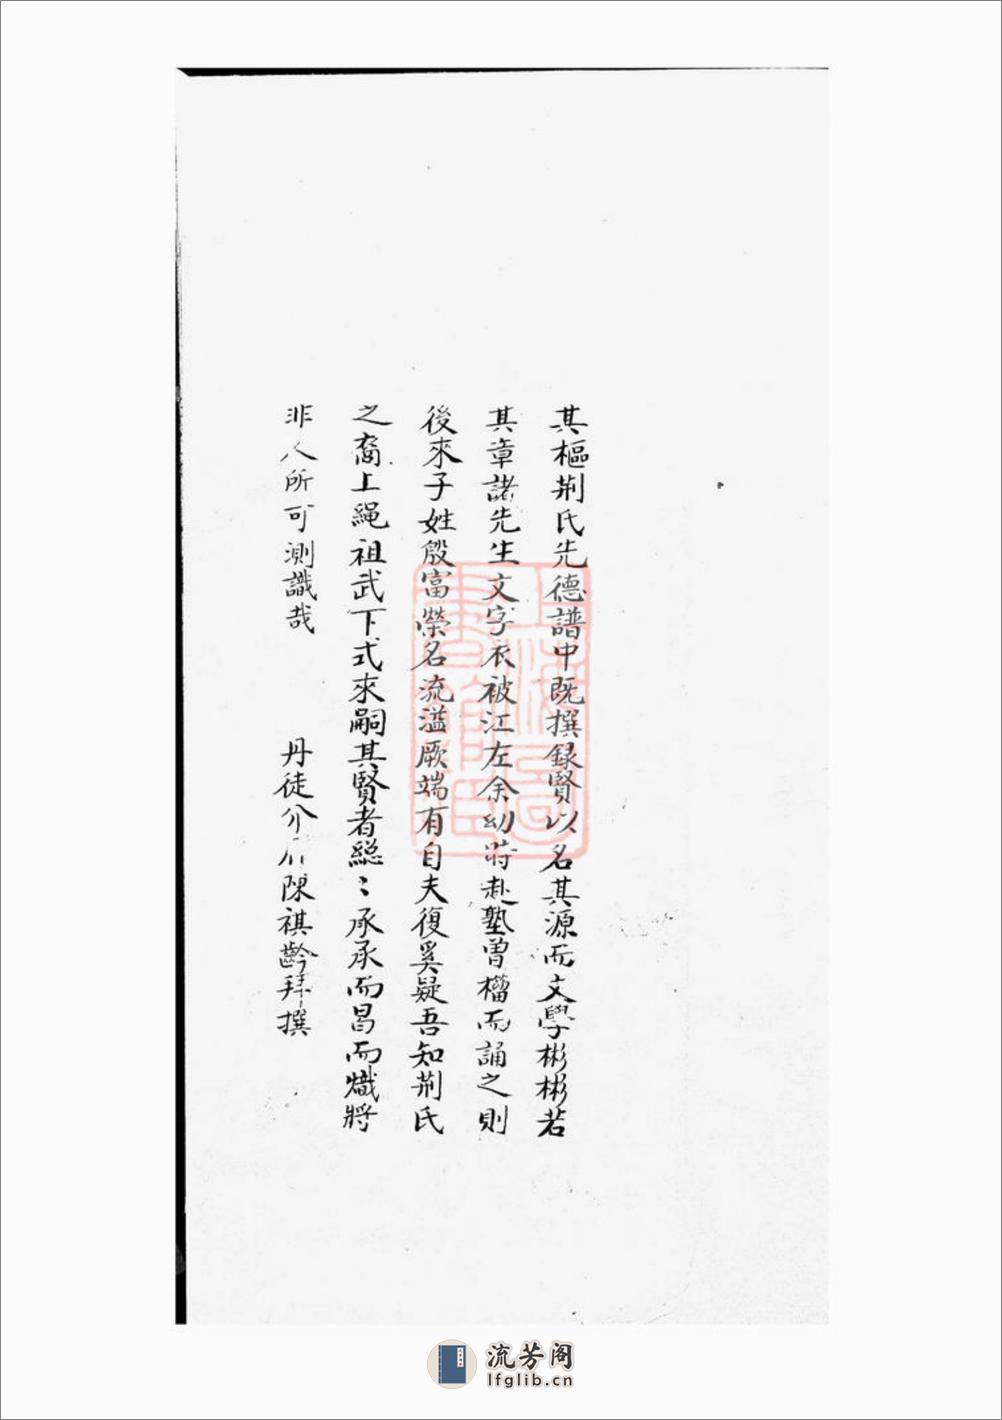 其樞荆氏先德譜中既撰録賢以名其源而文學彬彬若
其章諸先生文字衣被江左余幼時赴塾曽櫡而誦之則
後來子姓殷富榮名流溢厥端有自夫復奚疑吾知荆氏
之裔上繩祖武下式來嗣其賢者緫〻承承而昌而熾將
非人所可測識哉
丹徒介 陳祺齡拜撰
上海圖書館藏
流芳阁
lfglib.cn